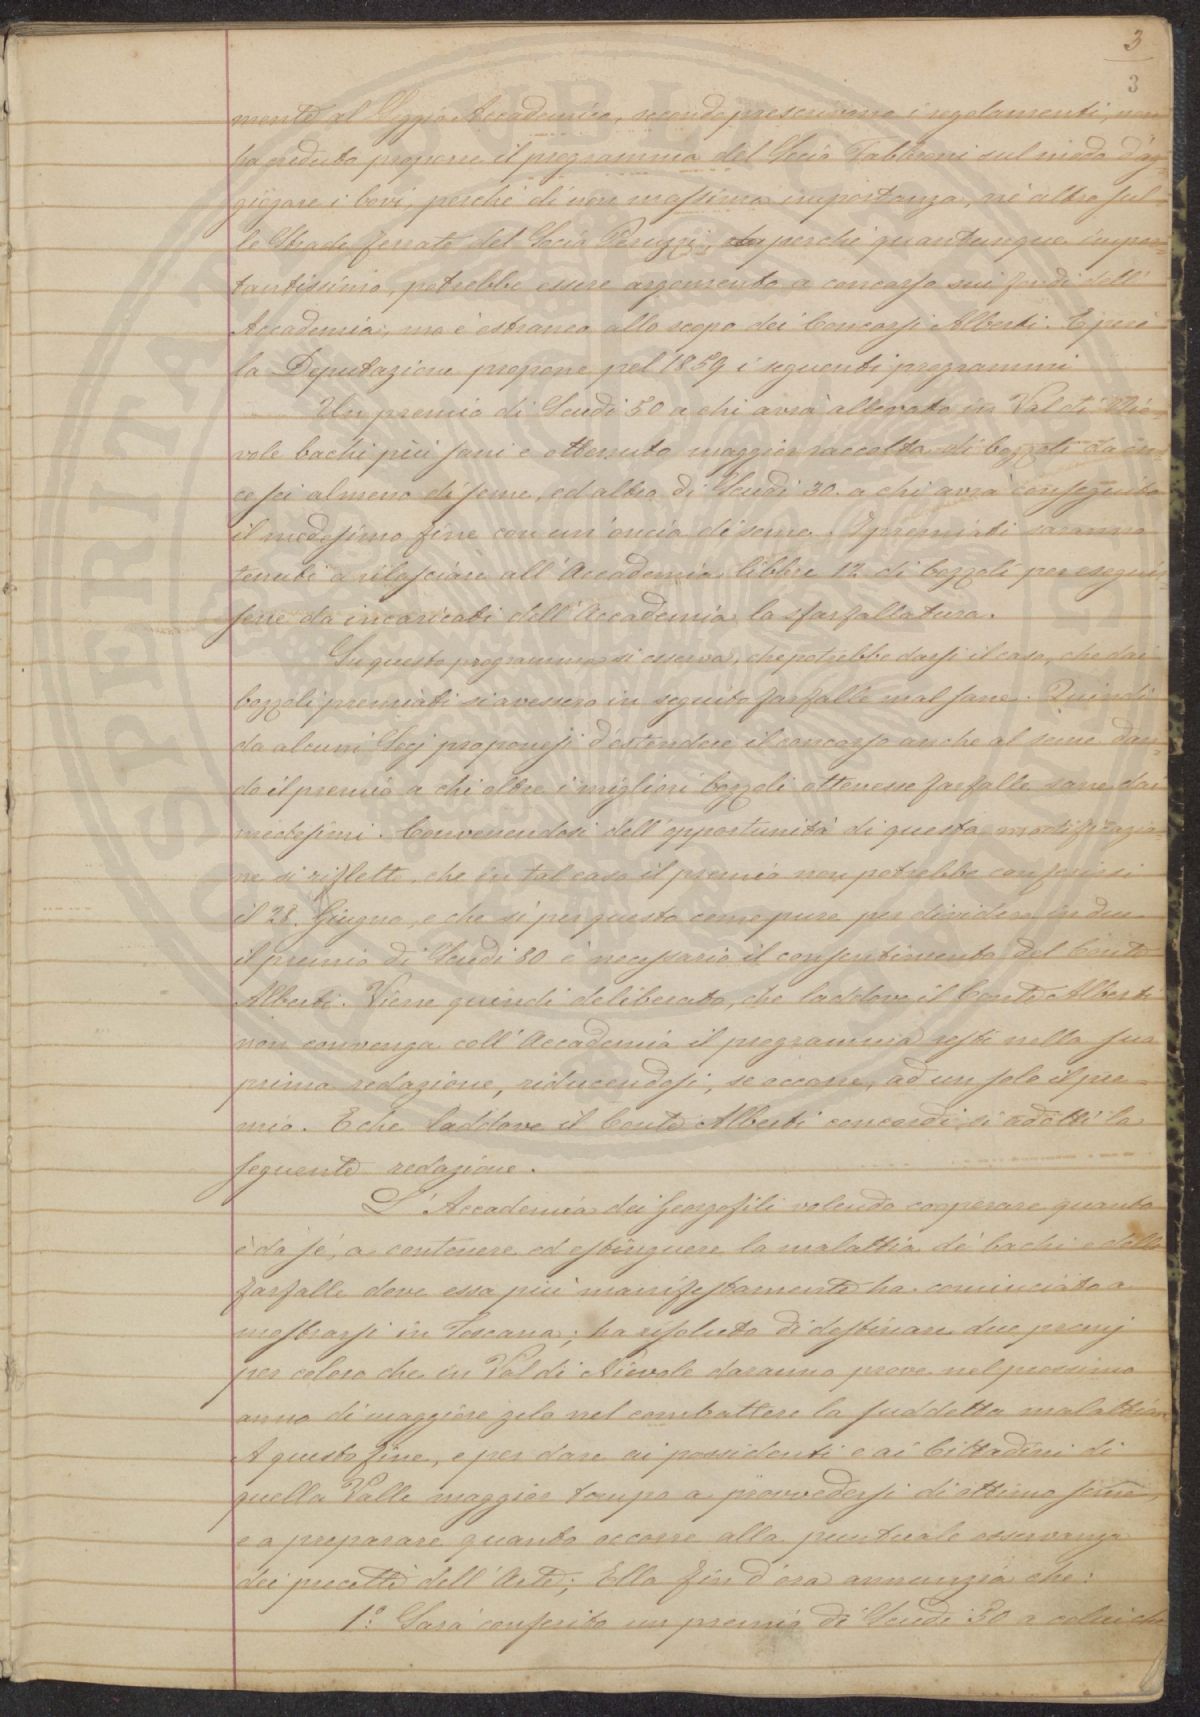 3
3
mente al Seggio Accademico, secondo prescrivono i regolamenti, non
ha creduto proporre il programma del Socio Fabbroni sul modo d'ag-
giogare i bovi, perchè di non massima importanza, nè altro sul-
le Strade ferrate del Socio Peruzzi, perchè quantunque impor-
tantissimo, potrebbe essere argomento a concorso sui fondi dell'
Accademia, ma è estraneo allo scopo dei Concorsi Alberti. E però
la Deputazione propone pel 1859 i seguenti programmi
Un premio di Scudi 50 a chi avrà allevato in Val di Nie-
vole bachi più sani e ottenuto maggior raccolta di bozzoli da on-
ce sei almeno di seme, ed altro di Scudi 30. a chi avrà conseguito
il medesimo fine con un'oncia di seme. I premiati saranno
tenuti a rilasciare all'Accademia libbre 12 di bozzoli per esegui-
sene da incaricati dell'Accademia la sfarfallatura.
Su questo programma si osserva, che potrebbe darsi il caso, che dai
bozzoli premiati si avessero in seguito farfalle mal sane. Quindi
da alcuni Socj proponesi d'estendere il concorso anche al seme dan-
do il premio a chi oltre i migliori bozzoli ottenesse farfalle sane dai
medesimi. Convenendosi dell'opportunità di questa modificazio-
ne si riflette, che in tal caso il premio non potrebbe conferirsi
il 28. Giugno, e che sì per questo come pure per dividere in due
il premio di Scudi 80 è necessario il consentimento del Conte
Alberti. Viene quindi deliberato, che laddove il Conte Alberti
non convenga coll'Accademia il programma resti nella sua
prima redazione, riducendosi, se occorre, ad un solo il pre-
mio. E che laddove il Conte Alberti concordi si adotti la
seguente redazione.
L'Accademia dei Georgofili volendo cooperare quanto
è da sé, a contenere ed estinguere la malattia de' bachi e delle
farfalle dove essa più manifestamente ha cominciato a
mostrarsi in Toscana; ha risoluto di destinare due premj
per coloro che in Val di Nievole daranno prove nel prossimo
anno di maggiore zelo nel combattere la suddetta malattia.
A questo fine, e per dare ai possidenti e ai Cittadini di
quella Valle maggior tempo a provvedersi di ottimo seme,
e a preparare quanto occorre alla puntuale osservanza
dei precetti dell'Arte; Ella fin d'ora annunzia che:
1.° Sarà conferito un premio di Scudi 50 a colui che